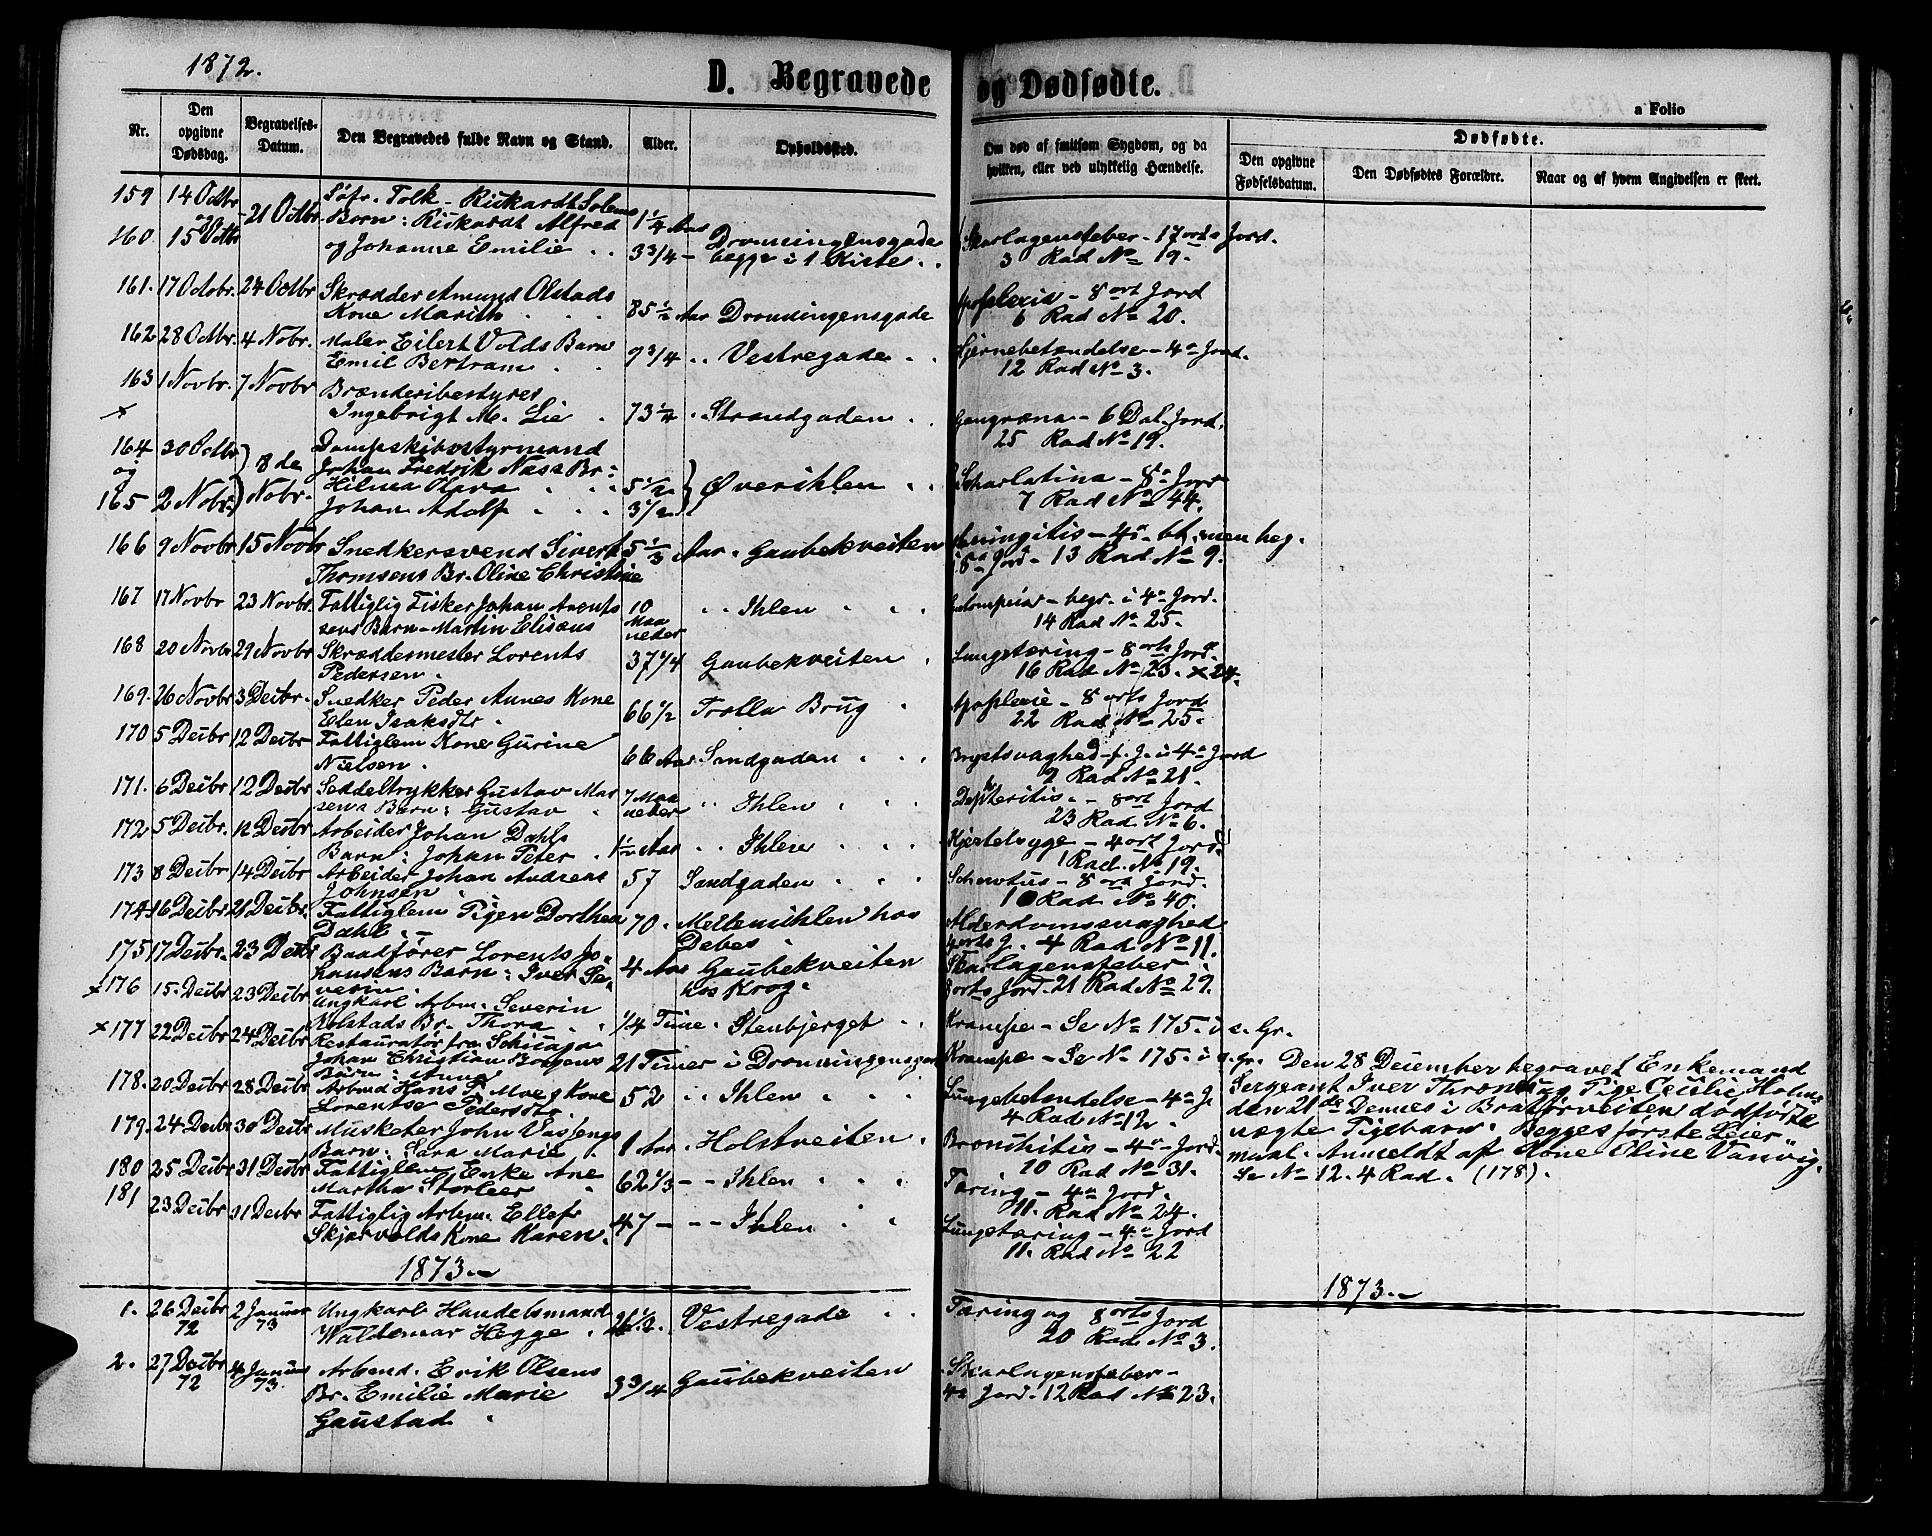 1872.
D. Begravede og Dødfødte.
a Folio
Nr.
Den opgivne Dødsdag.
Begravelses-Datum.
Den Begravedes fulde Navn og Stand.
Alder.
Opholdssted.
Om død af smitsom Sygdom, og da hvilken, eller ved ulykkelig Hændelse.
Dødfødte.
Den opgivne Fødselsdatum.
Den Dødfødtes Forældre.
Naar og af hvem Angivelsen er skeet.
159 14 Octbr 21 Octbr. Rickardt Solems
Barn: Rickardt Alfred 1 1/4 Aar
160. 15 Octbr og Johanne Emilie . . 3 3/4 - Dronningensgade begge i 1 Kiste . . Skarlagensfeber - 17 orts Jord.
3 Rad No 19.
161. 17 Octobr. 24 Octbr Skrædder Amund Olstads
Kone Marith . . . 85 1/2 Aar Dronningensgade Apoplexia - 8 ort Jord
6 Rad No 20.
162 28 Octbr. 4 Nobr. Maler Eilert Volds Barn
Emil Bertram . . 9 3/4 . . Vestregade . . Hjernebetændelse - 4 a Jord.
12 Rad No 3.
163 1 Novbr. 7 Novbr Brænderibestyrer
x Ingebrigt M. Lie . 73 1/4 . Strandgaden . . Gangræna - 6 Dal. Jord.
25 Rad No 19.
164 30 Octbr Dampskibsstyrmand
og 8 de Johan Fredrik Næss Br:
Nobr. Hilma Olava . . 5 1/2 Øverihlen . . Scharlatina - 8 a Jord
165 2 Nobr. Johan Adolf . . . 3 1/2 7 Rad No 44.
166 9 Novbr 15 Novbr Snedkersvend Sivert 5 1/3 Aar. Gaubekveiten Meningitis - 4 a bt. men beg.
Thomsens Br. Oline Christine i 8 a Jord - 13 Rad No 9.
167 17 Novbr 23 Novbr. Fattiglig Fisker Johan Arents 10 . . Ihlen . . . begr. i 4 a Jord.
sens Barn - Martin Elisæus Maaneder 14 Rad No 25.
168 20 Novbr 29 Novbr Skræddermester Lorents
Pedersen . 37 1/4 Gaubekveiten . Lungetæring - 8 orts Jord.
16 Rad No 23. x 24.
169. 26 Novbr 3 Decbr. Snedker Peder Aunes Kone
Elen Isaksdtr . 66 1/2 Trolla Brug . Apoplexie - 8 orts Jord
22 Rad No 25.
170 5 Decbr 12 Decbr Fattiglem Kone Gurine
Nielsen . 66 Aar Sandgaden . . . Brystsvaghed - f. J. i 4 a Jord
9 Rad No 21.
171. 6 Decbr 12 Decbr Seddeltrykker Gustav Mar
sens Barn: Gustav . 7 Maaneder . . Ihlen . . . - 8 ort Jord
23 Rad No 6.
172 5 Decbr. 12 Decbr Arbeider Johan Dahls
Barn: Johan Peter . 1 1/2 Aar . . Ihlen . . . Hjertesyge - 4 ort Jord.
1 Rad. No 19.
173 8 Decbr 14 Decbr Arbeider Johan Andreas
Johnsen . 57 Sandgaden . . . - 8 orts Jord.
10 Rad No 40.
174. 16 Decbr. 21 Decbr. Fattiglem Pigen Dorthea
Dahl. - 70. Mellemihlen hos Debes . Alderdomssvaghed
4 orts J. 4 Rad No 11.
175 17 Decbr. 23 Decbr Baadfører Lorents Jo-
hansens Barn: Iver Se-
verin 4 Aar Gaubekveiten hos Krog. Skarlagensfeber .
8 orts Jord. 21 Rad No 29.
x 176 15. Decbr 23 Decbr Ungkarl Arbm. Severin
Kolstads Br. Thora . . 1/4 Time . Stenbjerget . . Krampe - Se No 175. i s. Gr.
x 177 22 Decbr 24 Decbr Restauratør fra
Johan Christian Borgens
Barn: Anna 21 Timer i Dronningensgade Krampe - Se No 175. i s. Gr.
178. 20 Decbr 28 Decbr Arbmd Hans P. Kone
Lorentse Pedersdtr 52 . . Ihlen . . . Lungebetændelse - 4 a J.
4 Rad No 12.
179. 24 Decbr 30 Decbr Musketer John
Barn: Sara Marie . 1 Aar . Holstveiten . Bronchitis - 4 a Jord
10 Rad No 31.
180 25 Decbr 31 Decbr Fattiglem Enke Ane
Martha Storleer 62 1/3 - - Ihlen . . . Tæring - 4 a Jord.
11. Rad No 24.
181 23 Decbr 31 Decbr Fattiglig Arbm. Ellefs
Skjærvolds Kone Karen. 47 - - - Ihlen . . Lungetæring - 4 a Jord
11. Rad No 22
Den 28 December begravet Enkemand
Sergeant Iver og Pige Cecilie Holms
den 21 de Dennes i Bratørveiten dødfødte
uægte Pigebarn. Begges første Leier-
maal. Anmeldt af Kone Oline Vanvig.
Se No 12. 4 Rad. (178).
1873. 1873.
1. 26 Decbr 72 2 Januar 73 Ungkarl Handelsmand
Waldemar Hegge . 26 1/2. Vestregade . Tæring og 8 orts Jord
20 Rad No 3.
2. 27 Decbr 72 4 Januar 73. Arbmd. Erik Olsens
Br. Emilie Marie 3 3/4 Gaubekveiten Skarlagensfeber -
Gaustad . 4 a Jord. 12 Rad No 23.